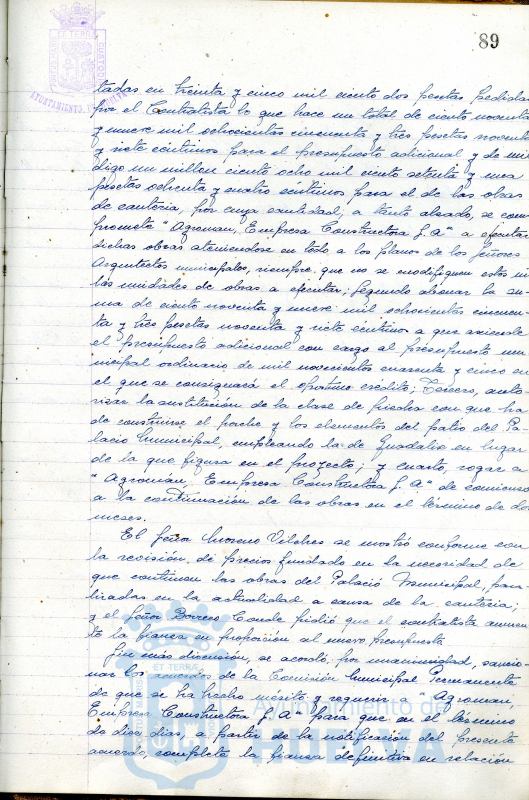 89
AYUNTAMIENTO
tadas en treinta y cinco mil ciento dos pesetas pedidas
por el Contratista lo que hace un total de ciento noventa
y nueve mil ochocientas cincuenta y tres pesetas noventa
y siete céntimos para el presupuesto adicional y de un
digo un millon ciento ocho mil ciento setenta y una
pesetas ochenta y cuatro céntimos para el de las obras
de cantería, por cuya cantidad, a tanto alzado, se com-
promete "Agroman, Empresa Constructora S.A." a ejecutar
dichas obras ateniendose en todo a los planos de los señores
Arquitectos municipales, siempre que no se modifiquen estos ni
las unidades de obras a ejecutar; Segundo abonar la su-
ma de ciento noventa y nueve mil ochocientas cincuen-
ta y tres pesetas noventa y siete céntimos a que asciende
el presupuesto adicional con cargo al presupuesto mu-
nicipal ordinario de mil novecientos cuarenta y cinco en
el que se consignará el oportuno crédito; Tercero, auto-
rizar la sustitución de la clase de piedra con que ha
de construirse el porche y los elementos del patio del Pa-
lacio Municipal, empleando la de en lugar
de la que figura en el proyecto; y cuarto, rogar a
"Agroman, Empresa Constructora S.A." de comienzo
a la continuación de las obras en el término de dos
meses.
El Señor Moreno Vilches se mostró conforme con
la revisión de precios fundado en la necesidad de
que continuen las obras del Palacio Municipal, para-
lizadas en la actualidad a causa de la cantería;
y el Señor Borrero Conde pidió que el contratista aumen-
te la fianza en proporción al nuevo presupuesto
Sin más discusión, se acordó por unanimidad, sancio-
nar los acuerdos de la Comisión Municipal Permanente
de que se ha hecho mérito y requerir a "Agroman,
Empresa Constructora S.A." para que en el término
de diez dias, a partir de la notificación del presente
acuerdo, complete la fianza definitiva en relación
ET TERRA
Ayuntamiento de
HUELVA